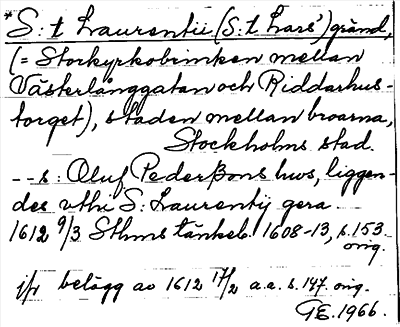 *S:t Laurentii (S:t Lars') gränd,
(= Storkyrkobrinken mellan
Västerlånggatan och Riddarhus-
torget), staden mellan broarna,
Stockholms stad.
--s: Oluf Pederßons hws, liggen-
des vthi S: Laurentij gera
1612 9/3 Sthms tänkeb. 1608-13, s. 153
orig.
jfr belägg av 1612 17/2 a.a. s. 147. orig.
GE. 1966.